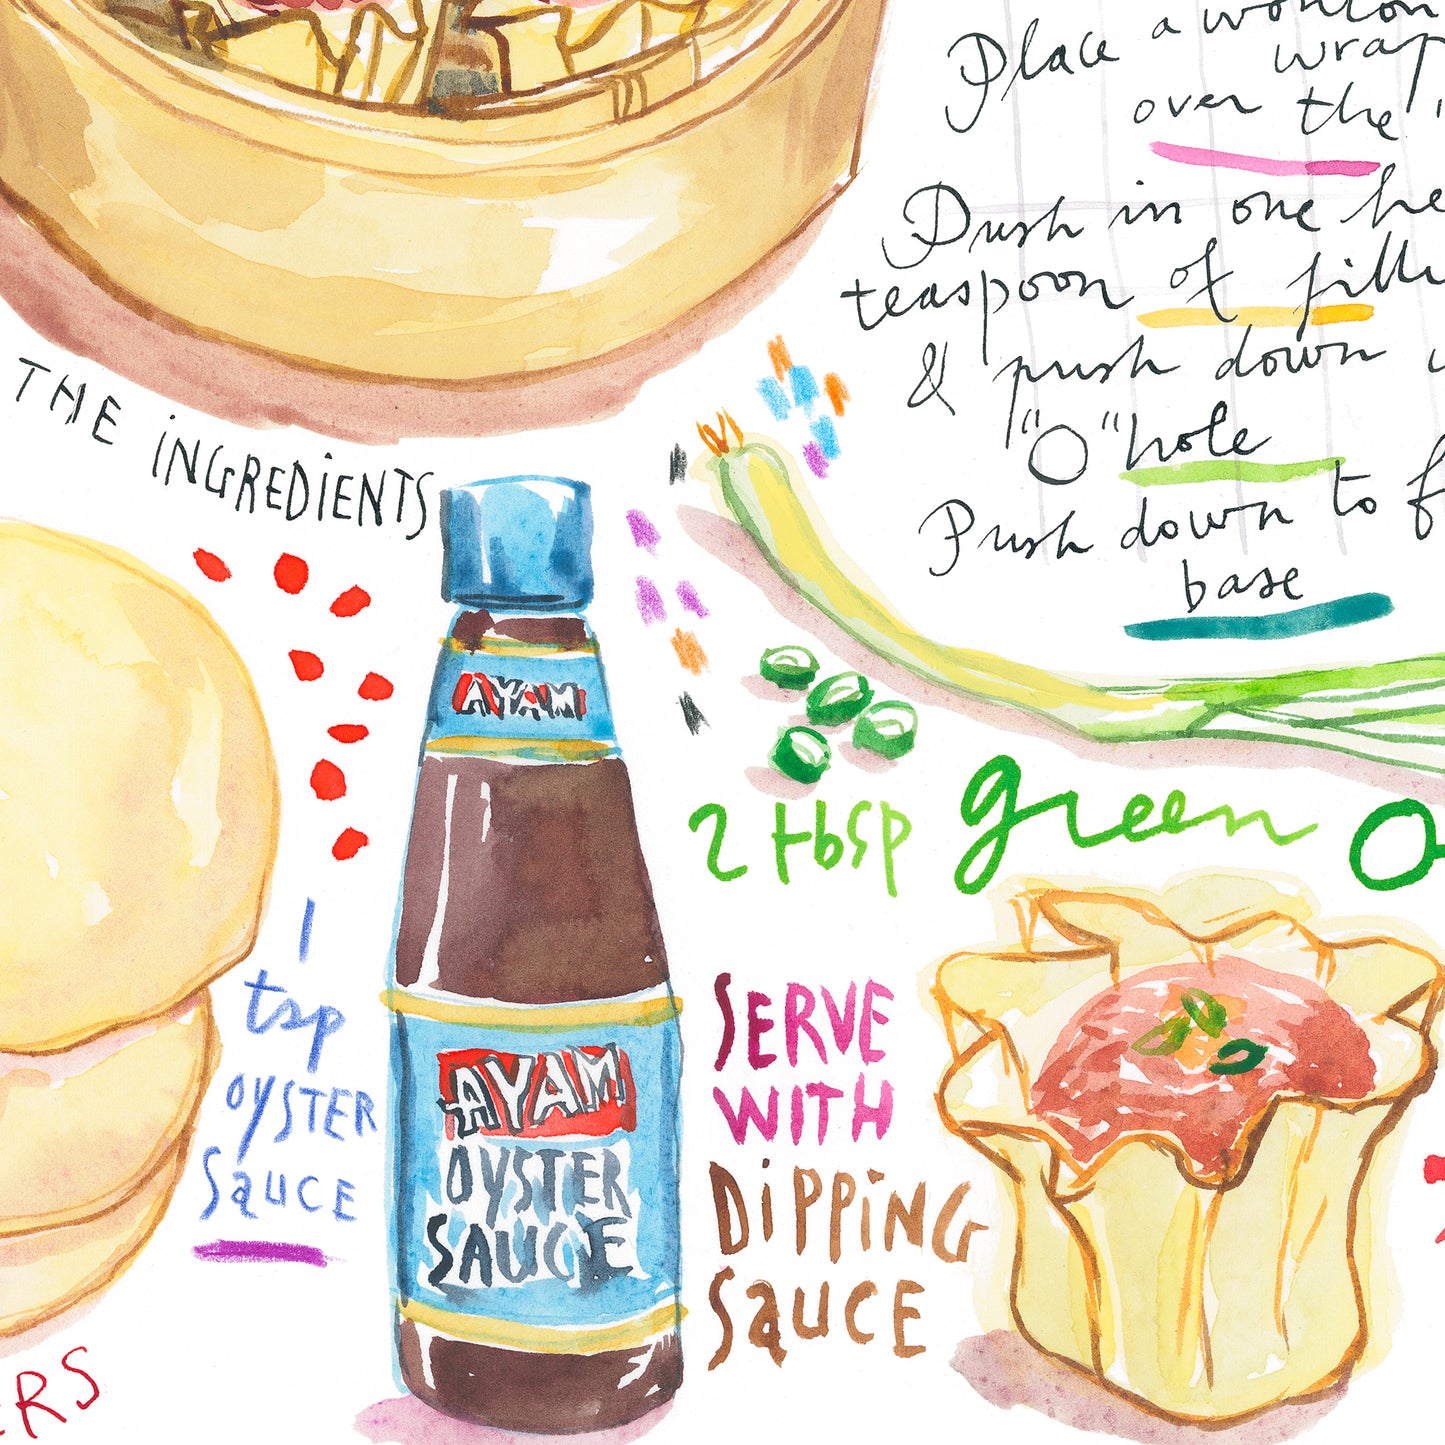 Place a wonton
wrap
over the
Push in one he
teaspoon of filli
& push down
"O" hole
Push down to f
base
THE iNGREDiENTS
AYAM
2 tbsp green O
1
tsp
OYSTER
SauCE
AYAM
OYSTER
SAUCE
SERVE
WITH
DiPPiNG
SauCE
ERS